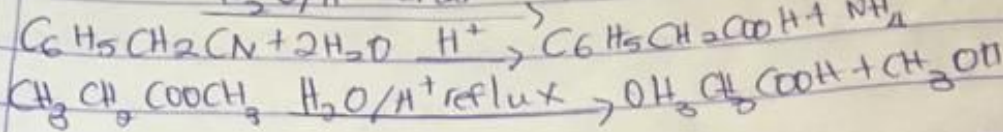 C6H5CH2CN + 2H2O H+ → C6H5CH2COOH + NH4
CH3CH2COOCH3 H2O/H+ reflux → OH3CH3COOH + CH3OH